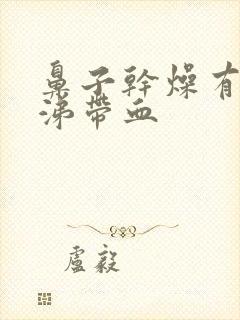 鼻子幹燥有
涕帶血
盧毅